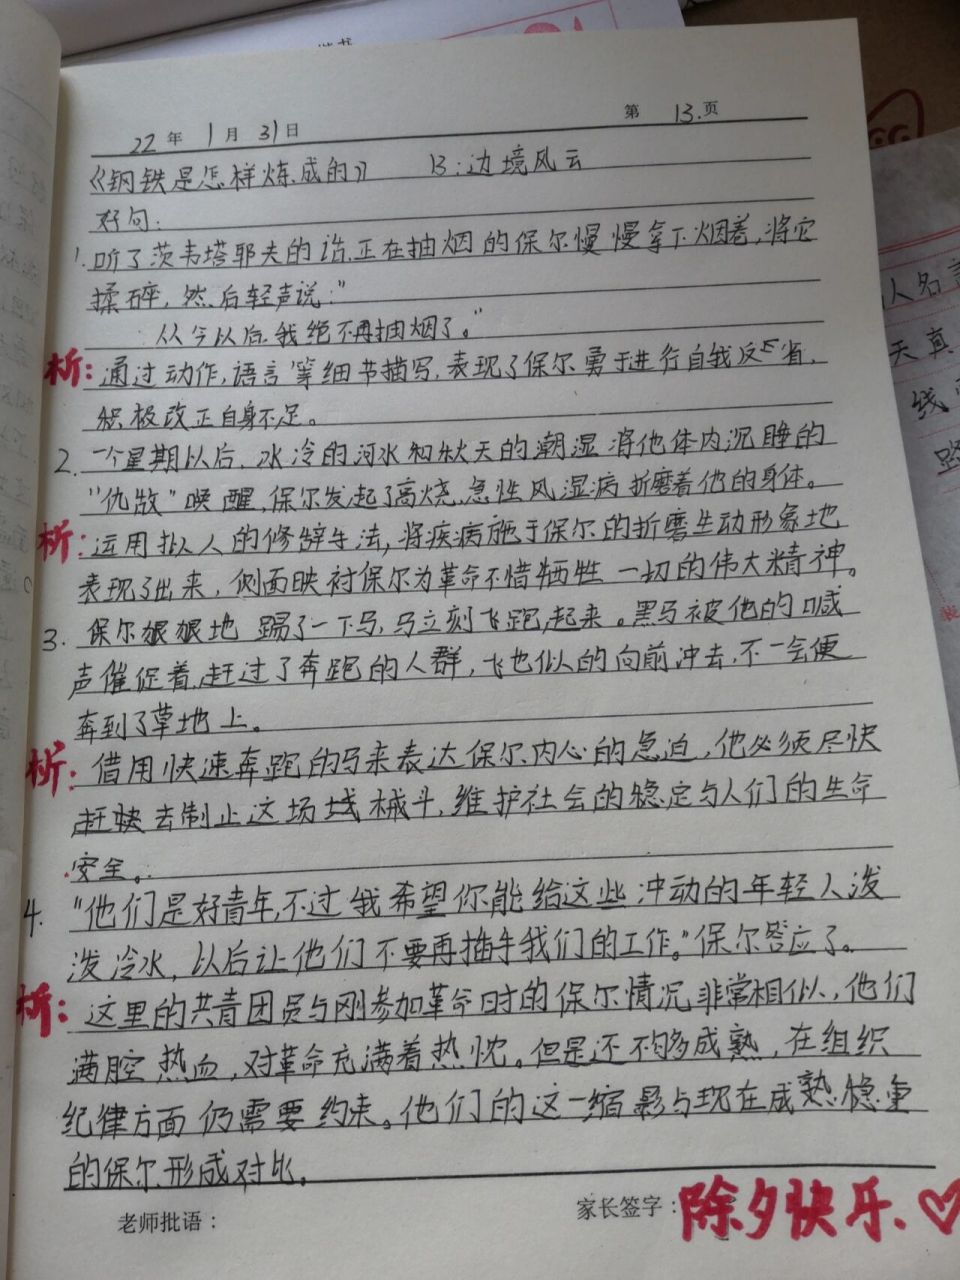 第 13. 页
22 年 1 月 31 日
《钢铁是怎样炼成的》 13:边境风云
好句:
1. 听了茨韦塔耶夫的话,正在抽烟的保尔慢慢拿下烟卷,将它
揉碎,然后轻声说:"
从今以后,我绝不再抽烟了。"
析:通过动作,语言等细节描写,表现了保尔勇于进行自我反省,
积极改正自身不足。
2. 一个星期以后,冰冷的河水和秋天的潮湿将他体内沉睡的
"仇敌"唤醒,保尔发起了高烧,急性风湿病折磨着他的身体。
析:运用拟人的修辞手法,将疾病施于保尔的折磨生动形象地
表现了出来,侧面映衬保尔为革命不惜牺牲一切的伟大精神。
3. 保尔狠狠地踢了一下马,马立刻飞跑起来。黑马被他的喊
声催促着,赶过了奔跑的人群,飞也似的向前冲去,不一会便
奔到了草地上。
析:借用快速奔跑的马来表达保尔内心的急迫,他必须尽快
赶快去制止这场械斗,维护社会的稳定与人们的生命
安全。
4. "他们是好青年,不过我希望你能给这些冲动的年轻人泼
泼冷水,以后让他们不要再插手我们的工作。"保尔答应了。
析:这里的共青团员与刚参加革命时的保尔情况非常相似,他们
满腔热血,对革命充满着热忱。但是还不够成熟,在组织
纪律方面仍需要约束。他们的这一缩影与现在成熟稳重
的保尔形成对比。
老师批语: 家长签字: 除夕快乐.♡
人名言
天真
线